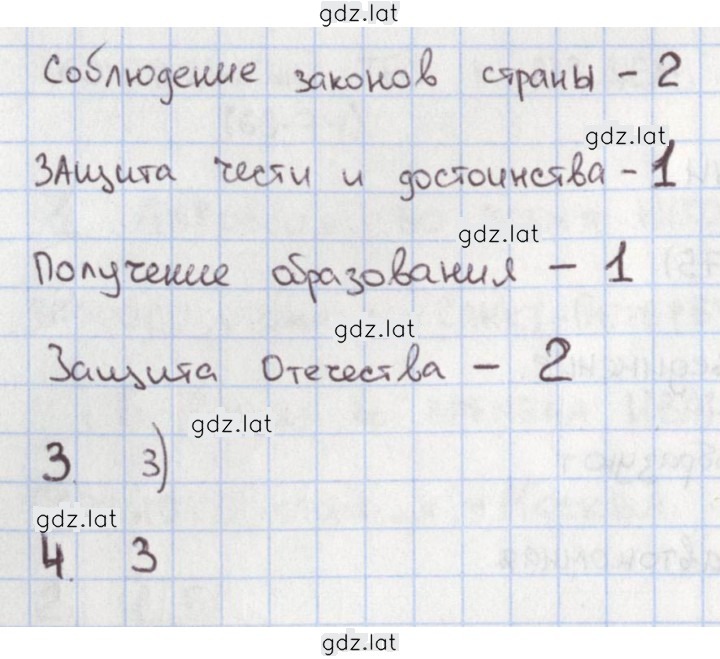 gdz.lat
Соблюдение законов страны - 2
gdz.lat
ЗАщита чести и достоинства - 1
gdz.lat
Получение образования - 1
gdz.lat
Защита Отечества - 2
gdz.lat
3. 3)
gdz.lat
4. 3
gdz.lat